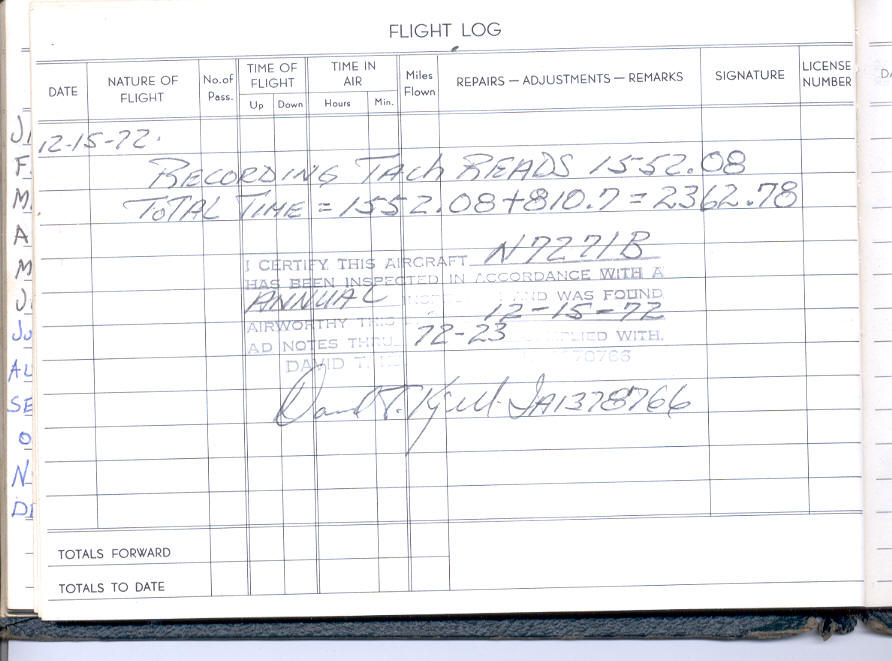 FLIGHT LOG
DATE
NATURE OF FLIGHT
No. of Pass.
TIME OF FLIGHT
Up
Down
TIME IN AIR
Hours
Min.
Miles Flown
REPAIRS — ADJUSTMENTS — REMARKS
SIGNATURE
LICENSE NUMBER
12-15-72.
RECORDING TACH READS 1552.08
TOTAL TIME = 1552.08+810.7 = 2362.78
I CERTIFY THIS AIRCRAFT N7271B
HAS BEEN INSPECTED IN ACCORDANCE WITH A
ANNUAL AND WAS FOUND
AIRWORTHY THIS 12-15-72
AD NOTES THRU 72-23 COMPLIED WITH.
DAVID T.
David T. IA1378766
TOTALS FORWARD
TOTALS TO DATE
F
M
A
M
J
JU
AU
SE
O
N
DE